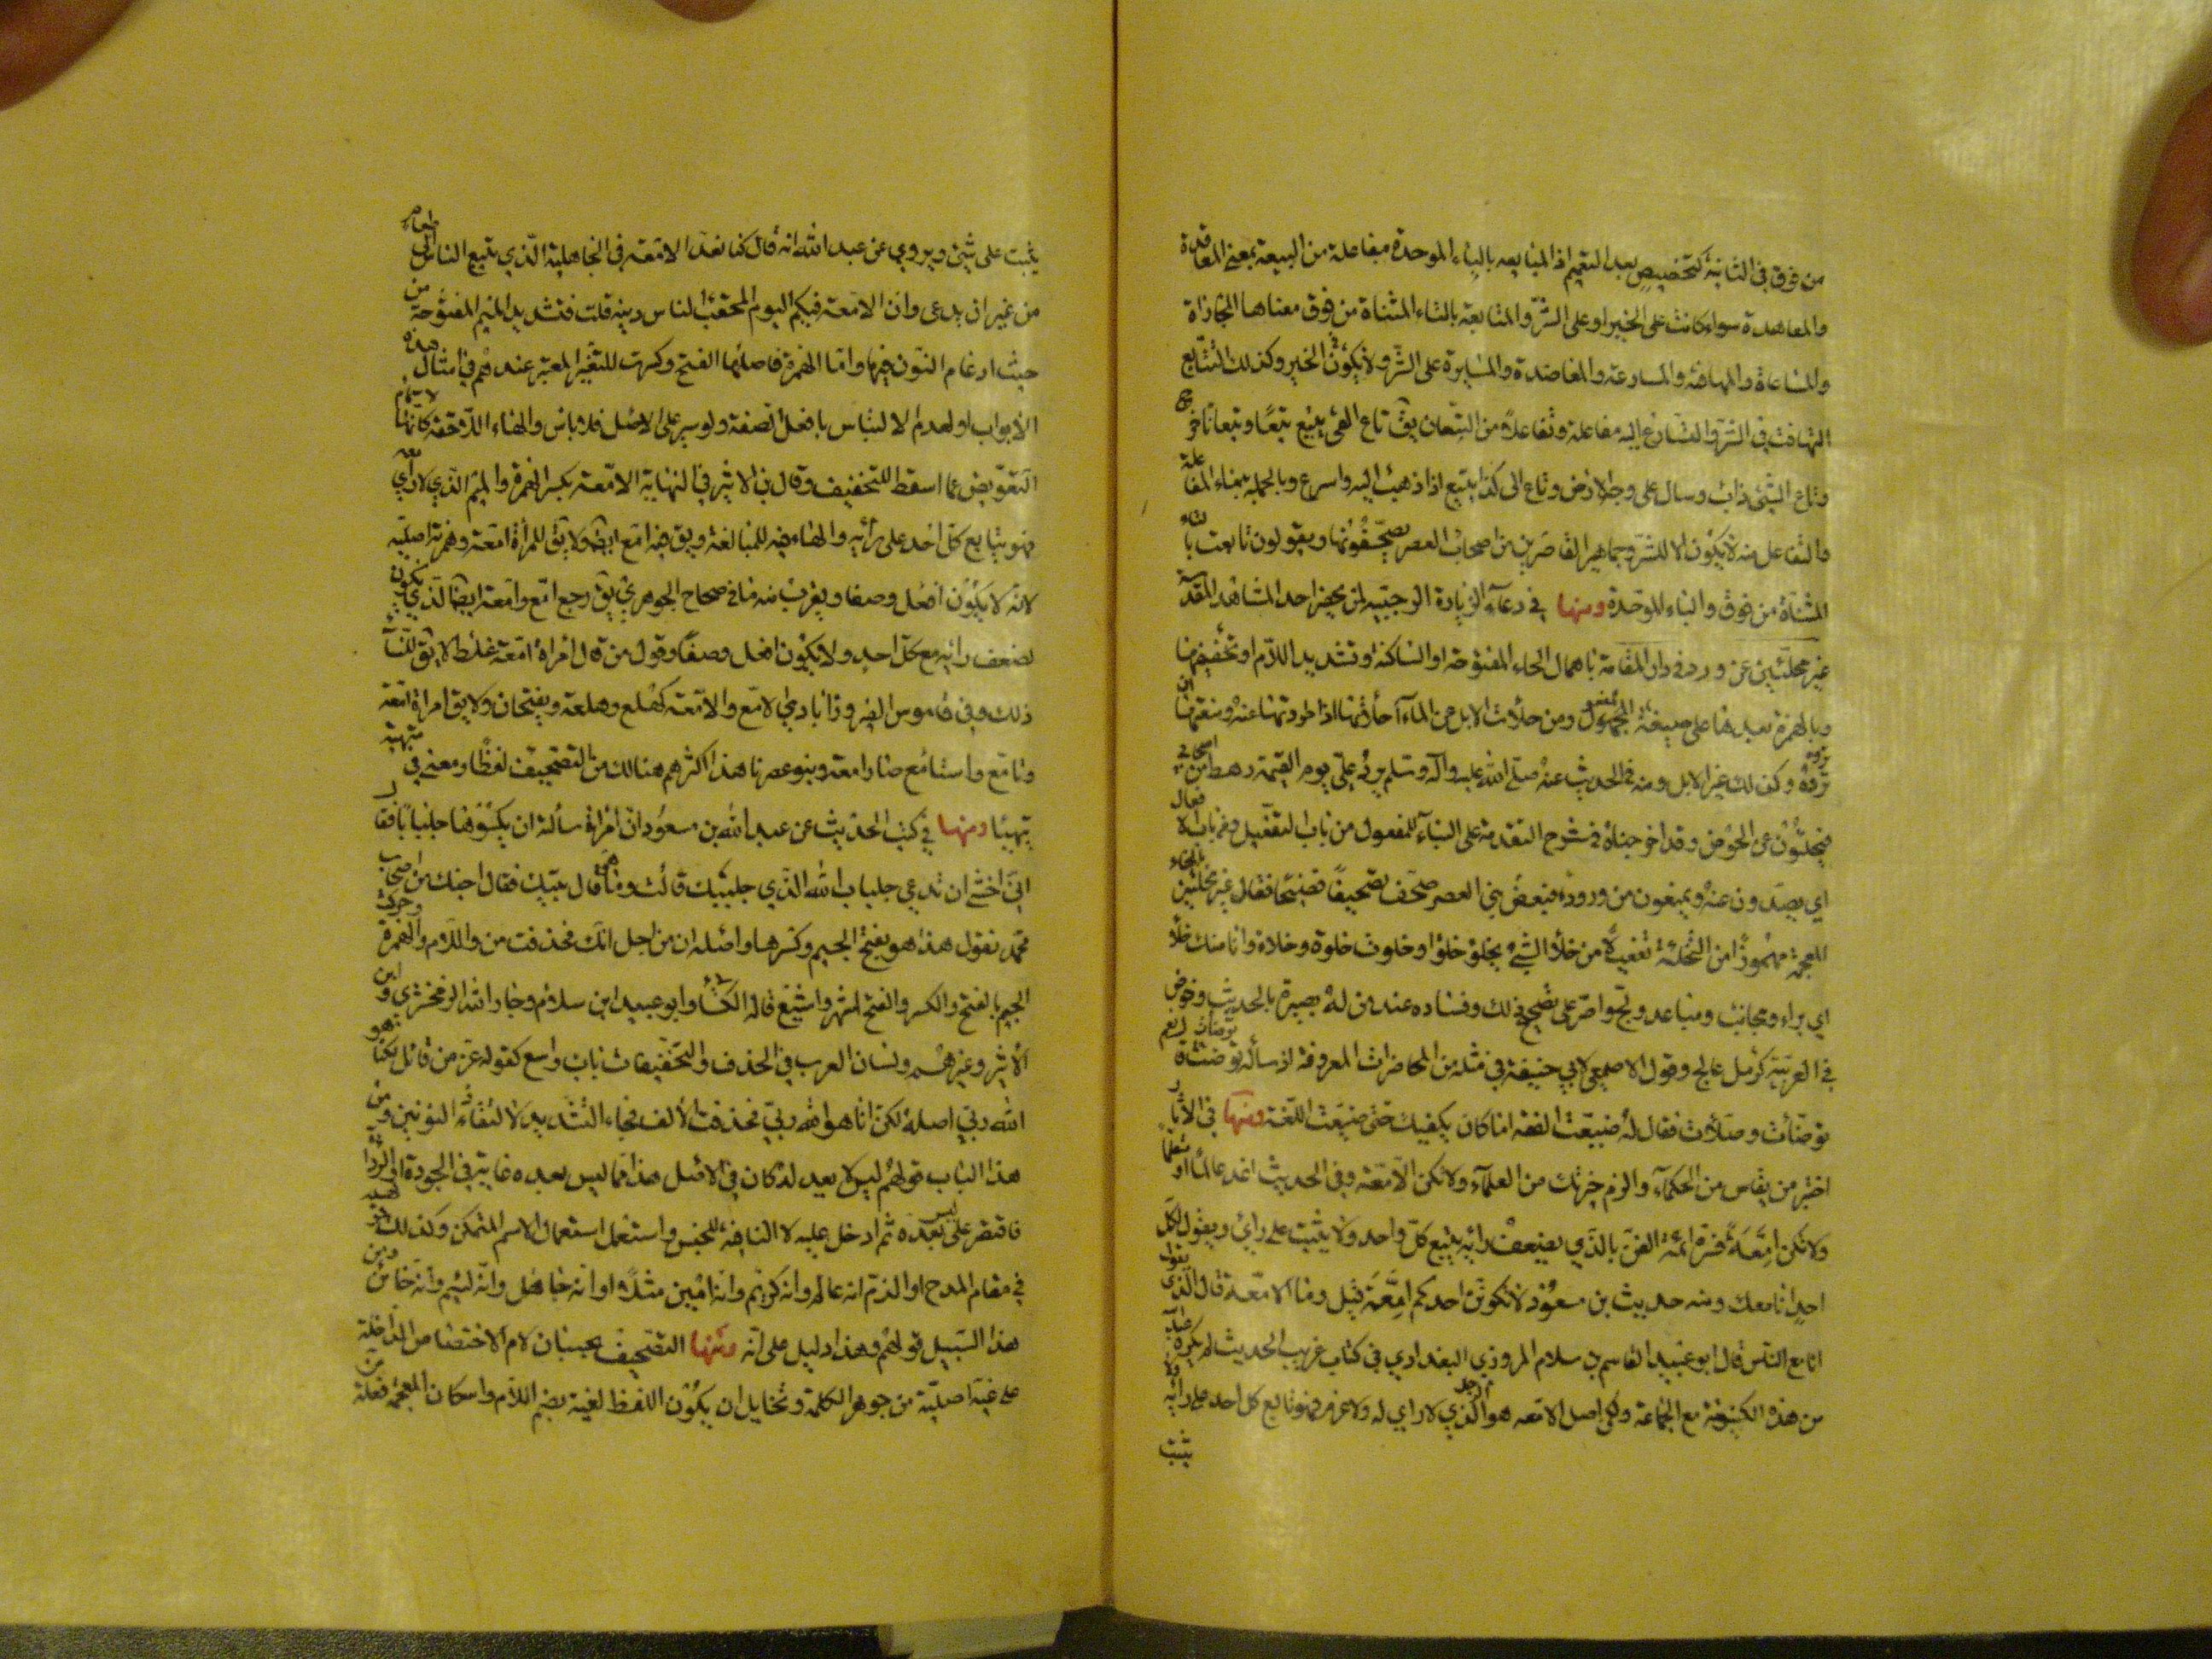 من فوق في الثانية كتخصيص بعد التعميم اذ المبايعه بالباء الموحدة مفاعلة من البيعة بمعنى المعاقدة
والمعاهدة سواء كانت على الخير او على الشر والمتايعة بالتاء المثناة من فوق معناها المجازاة
والمساعاة والمهافتة والمسارعة والمعاضدة والمسايرة على الشر ولا يكون في الخير وكذلك التتايع
التهافت في الشر والتسارع اليه مفاعلة وتفاعلا من التيعان يق تاع القئ يتيع تيعا وتيعانا خرج
وتاع الشئ ذاب وسال على وجه الارض وتاع الى كذا يتيع اذا ذهب اليه واسرع وبالجمله بناء المفاعلة
والتفاعل منه لا يكون الا للشر وجماهير القاصرين من اصحاب العصر يصحفونها ويقولون تابعت بالتاء
المثناة من فوق والباء الموحدة ومنها في دعاء الزيارة الرجبيه لمن يحضر احد المشاهد المقدسة
غير محلئين عن ورد في دار المقامة باهمال الحاء المفتوحة او الساكنة وتشديد اللام او تخفيفها
وبالهمزة بعدها على صيغة المجهول ومن حلأت الابل عن الماء احلأتها اذا طردتها عنه ومنعتها ان
ترده وكذلك غير الابل ومنه في الحديث عنه صلى الله عليه وآله وسلم يرد علي يوم القيمة رهط من اصحابي
فيحلئون عن الحوض وقد اخرجناه في شرح التقدمة على البناء للمفعول من باب التفعيل ومن باب الافعال
اي يصدون عنه ويمنعون من وروده فبعض بني العصر صحف تصحيفا فضيحا فقال غير مخلئين بالخاء
المعجمة مهموزا من التخلئة تفعيلا من خلأ الشئ يخلؤ خلؤا وخلوت خلوة وخلاء وانا منك خلاء
اي براء ومجانب ومتباعد ولج واصر على ذلك وفساده عند من له بصيرة بالحديث وخوض
في العربية كرمل عالج وقول الاصمعي لابي حنيفة في مثله من المحاضرات المعروفة اذ سأله توضأت
توضأت وصلأت فقال له ضيعت الفقه اما كان يكفيك حتى ضيعت اللغة ومنها في الاثار
اختبر من يقاس من الحكماء والزم خيرتك من العلماء ولا تكن الامعة وفي الحديث اغد عالما او متعلما
ولا تكن امعة فسره ائمة الفن بالذي يضعف رايه يتبع كل واحد ولا يثبت على راي ويقول لكل
احد انا معك ومنه حديث بن مسعود لا تكونن احدكم امعة قيل وما الامعة قال الذي يقول
انا مع الناس قال ابو عبيد القاسم بن سلام المروزي البغدادي في كتاب غريب الحديث لم يكره عبد الله
من هذه الكينونة مع الجماعة ولكن اصل الامعه هو الرجل الذي لا راي له ولا عزم فهو تابع كل احد على رايه ولا
يثبت
يثبت على شئ ويروي عن عبد الله انه قال كنا نعد الامعة في الجاهلية الذي يتبع الناس الى طعام
من غير ان يدعى وان الامعة فيكم اليوم المحقب الناس دينه قلت فتشديد الميم المفتوحة من
حيث ادغام النون فيها واما الهمزة فاصلها الفتح وكسرت للتغير المعتبر عندهم في امثال هذه
الابواب او لعدم الالتباس بافعل الصفة ولو سير على الاصل فلا باس والهاء اللاحقة كانها
التعويض عما اسقط للتخفيف وقال بن الاثير في النهاية الامعة بكسر الهمزة والميم الذي لا راي له
فهو يتابع كل احد على رأيه والهاء فيه للمبالغة ويق فيه امع ايض ولا يق للمرأة امعة وهمزته اصلية
لانه لا يكون افعل وصفا ويقرب منه ما في صحاح الجوهري يق رجل امع وامعة ايضا الذي يكون
لضعف رايه مع كل احد ولا يكون افعل وصفا وقول من قال امراة امعة غلط لا يق للنساء
ذلك وفي قاموس الفيروزابادي الامع والامعة كهلع وهلعة ويفتحان ولا يق امراة امعة
وتامع واستامع صار امعة وبنو عصرنا هذا اكثرهم هنالك من التصحيف لفظا ومعنى في
تيهيتا ومنها في كتب الحديث عن عبد الله بن مسعود ان امراة سألته ان يكسوها جلبابا فقال
اني اخشى ان تدعي جلباب الله الذي جلببك قالت وما هو قال بيتك فقال اجنك من اصحاب
محمد نقول هذا هو بفتح الجيم وكسرها واصله ان من اجل انك فحذفت من واللام والهمزة وحركت
الجيم بالفتح والكسر والفتح اشهر واشيع قاله الكسائي وابو عبيد ابن سلام وجار الله الزمخشري وابن
الاثير وغيرهم ولسان العرب في الحذف والتخفيفات باب واسع كقوله عز من قائل لكنا هو
الله ربي اصله لكن انا هو الله ربي فحذفت الالف فجاء التشديد لالتقاء النونين ومن
هذا الباب قولهم ليس لا بعد لذ كان في الاصل هذا مما ليس بعده غاية في الجودة او الرداءة
فاقتصر على ليس بعده ثم ادخل عليه لا النافية للجنس واستعمل استعمال الاسم المتمكن وكذلك
في مقام المدح او الذم انه عالم وانه كريم وانه امين مثلا او انه جاهل وانه لئيم وانه خائن ومن
هذا السبيل قولهم وهذا دليل على انه ومنها التصحيف بحسبان لام الاختصاص الداخلة
على غية اصلية من جوهر الكلمة وتخايل ان يكون اللفظ لغية بضم اللام واسكان المعجمة فعلة من